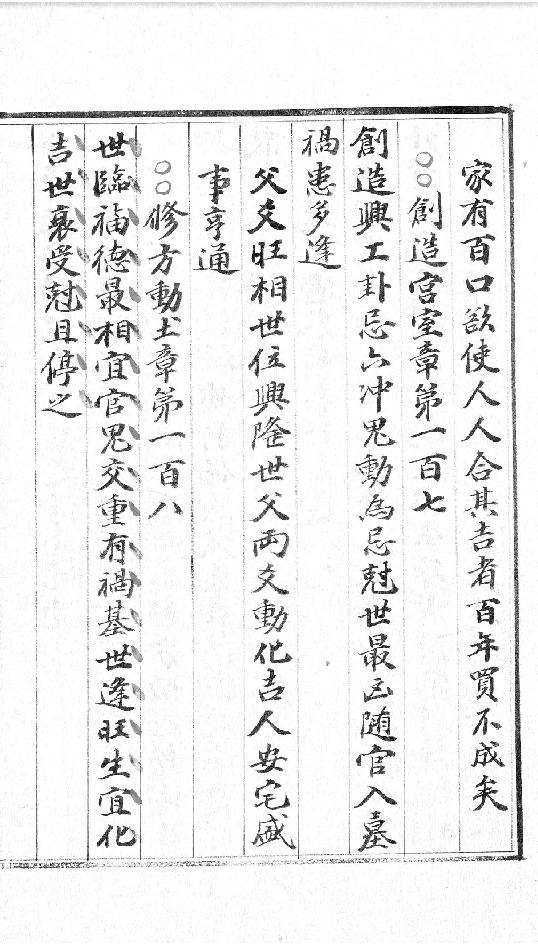 家有百口欲使人人合其吉者百年買不成矣
○○創造宮室章第一百七
創造興工卦忌六冲鬼動為忌尅世最凶随官入墓
禍患多逢
父爻旺相世位興隆世父兩爻動化吉人安宅盛
事亨通
○○修方動土章第一百八
世臨福德最相宜官鬼交重有禍基世逢旺生宜化
吉世衰受尅且停之